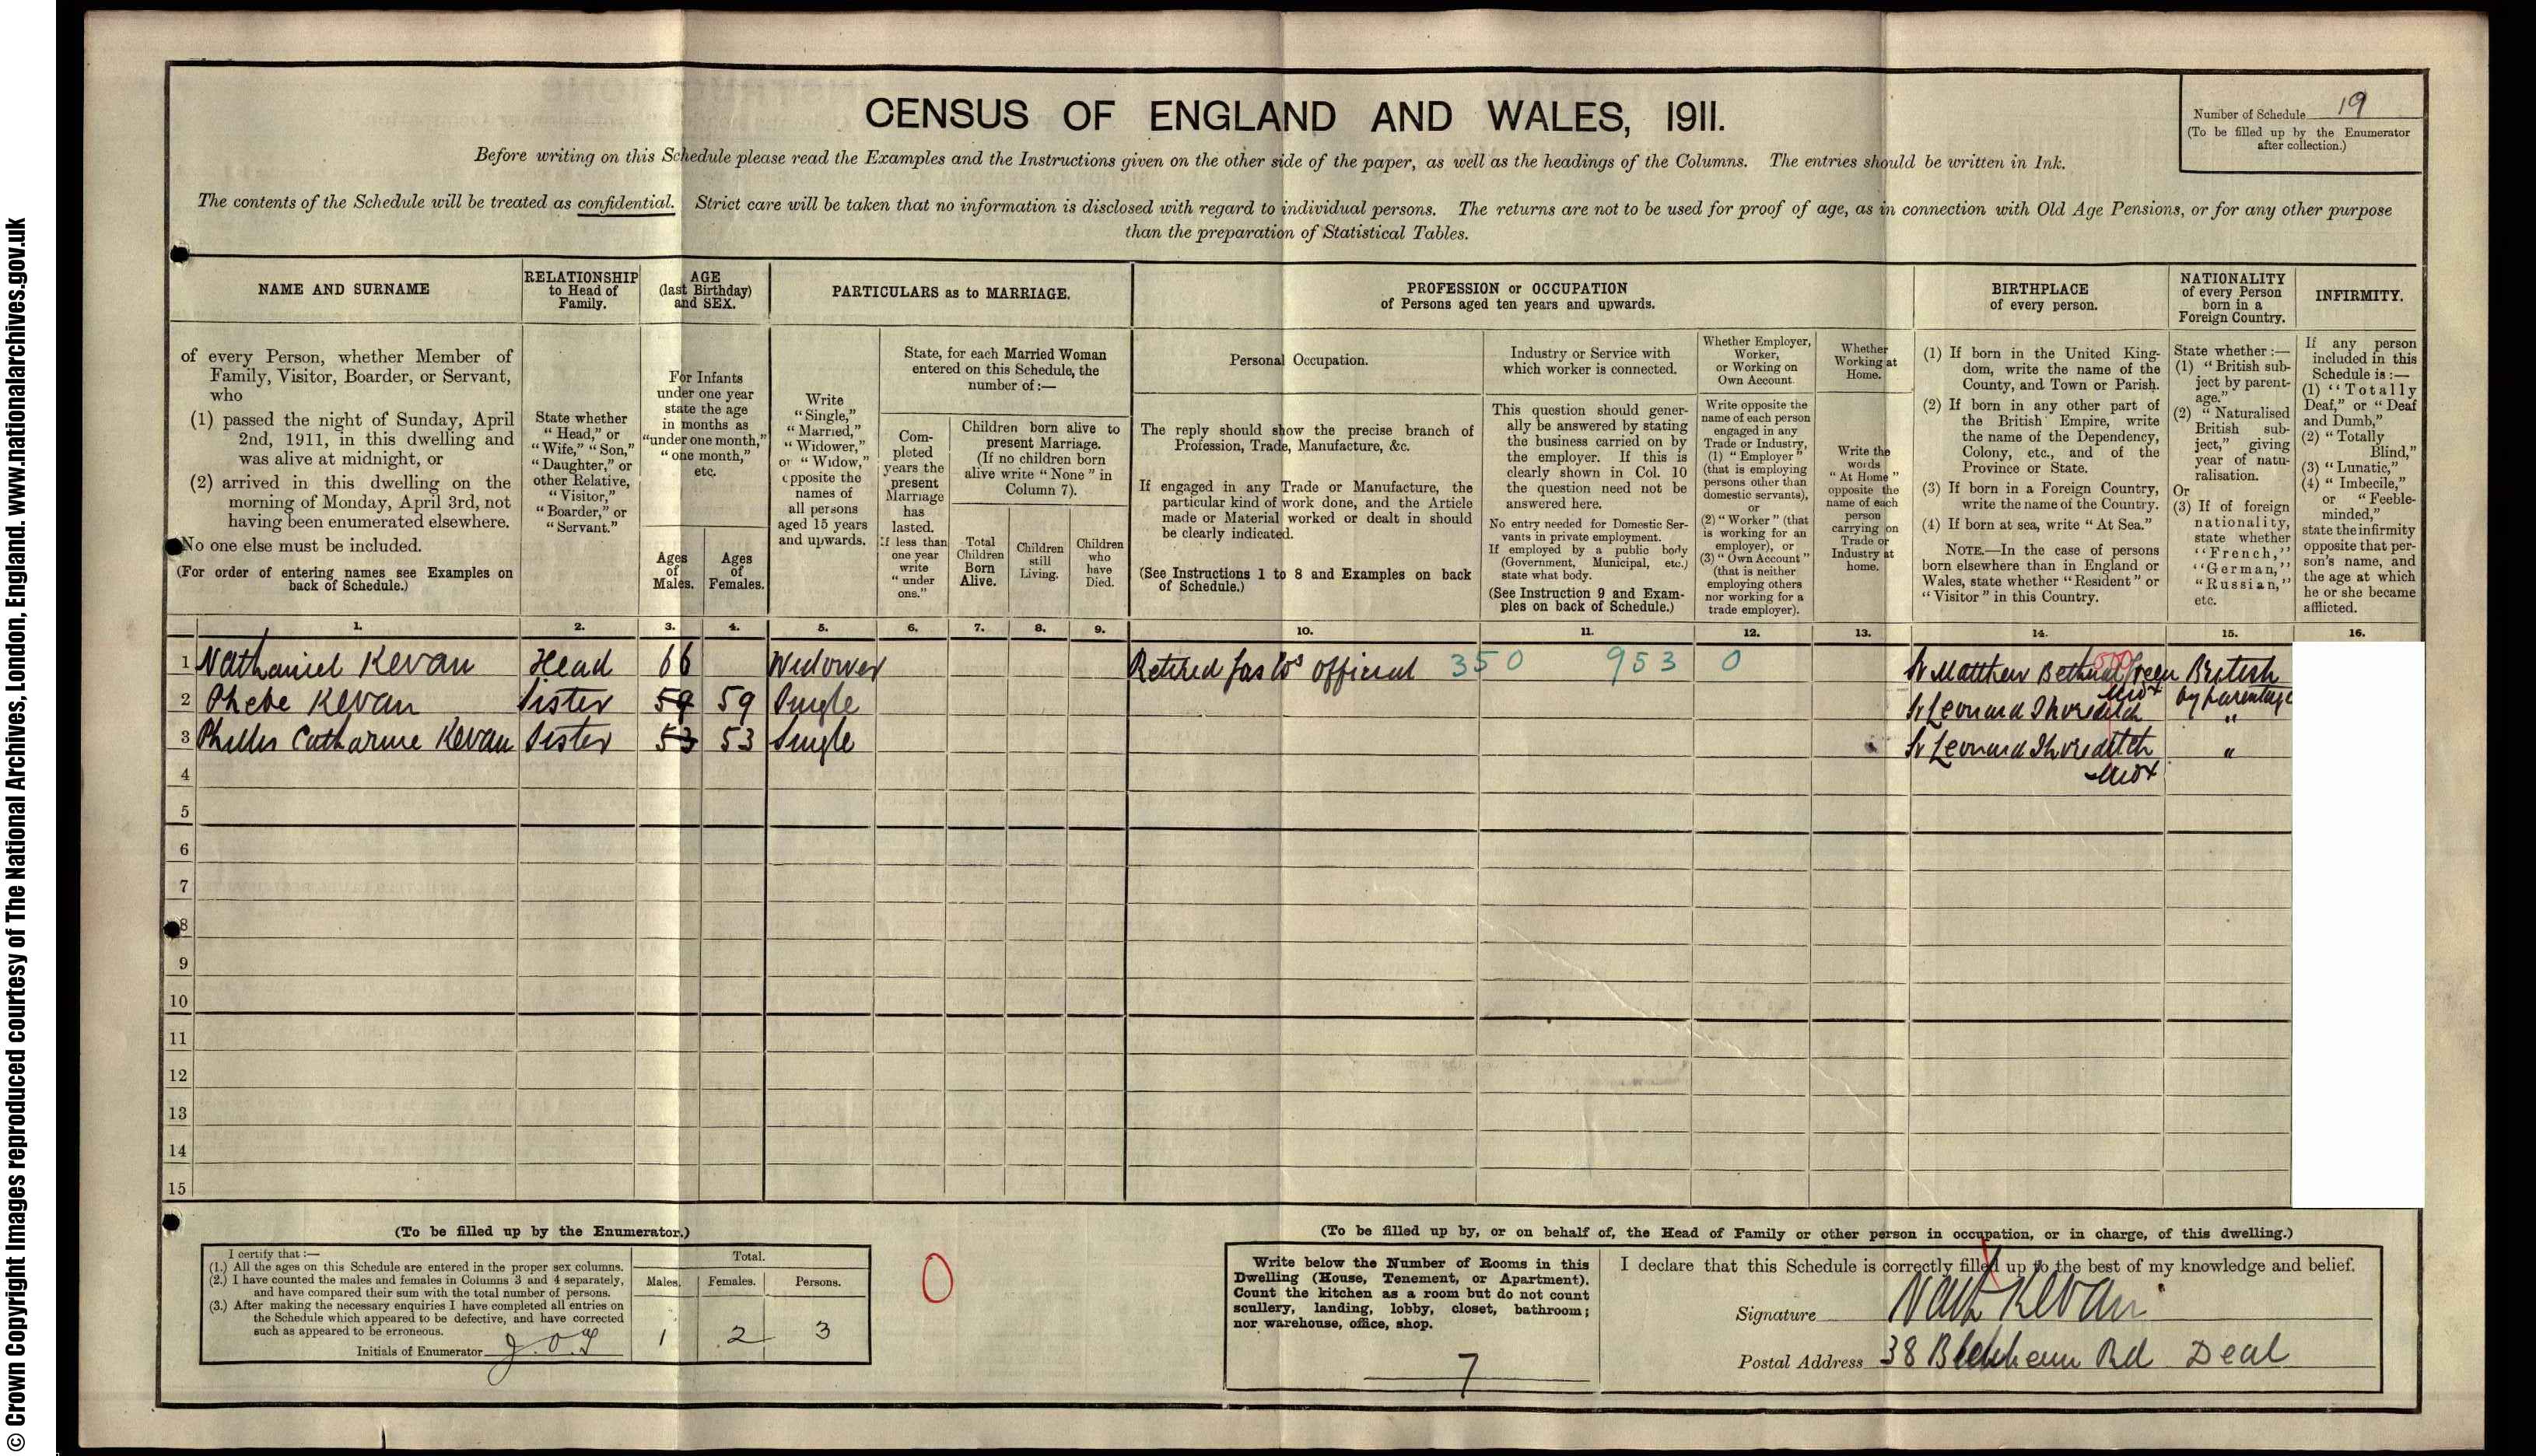 © Crown Copyright Images reproduced courtesy of The National Archives, London, England. www.nationalarchives.gov.uk
CENSUS OF ENGLAND AND WALES, 1911.
Number of Schedule 19
(To be filled up by the Enumerator
after collection.)
Before writing on this Schedule please read the Examples and the Instructions given on the other side of the paper, as well as the headings of the Columns. The entries should be written in Ink.
The contents of the Schedule will be treated as confidential. Strict care will be taken that no information is disclosed with regard to individual persons. The returns are not to be used for proof of age, as in connection with Old Age Pensions, or for any other purpose
than the preparation of Statistical Tables.
NAME AND SURNAME
of every Person, whether Member of
Family, Visitor, Boarder, or Servant,
who
(1) passed the night of Sunday, April
2nd, 1911, in this dwelling and
was alive at midnight, or
(2) arrived in this dwelling on the
morning of Monday, April 3rd, not
having been enumerated elsewhere.
No one else must be included.
(For order of entering names see Examples on
back of Schedule.)
RELATIONSHIP
to Head of
Family.
State whether
"Head," or
"Wife," "Son,"
"Daughter," or
other Relative,
"Visitor,"
"Boarder," or
"Servant."
AGE
(last Birthday)
and SEX.
For Infants
under one year
state the age
in months as
"under one month,"
"one month,"
etc.
Ages
of
Males.
Ages
of
Females.
PARTICULARS as to MARRIAGE.
Write
"Single,"
"Married,"
"Widower,"
or "Widow,"
opposite the
names of
all persons
aged 15 years
and upwards.
State, for each Married Woman
entered on this Schedule, the
number of:—
Com-
pleted
years the
present
Marriage
has
lasted.
If less than
one year
write
"under
one."
Children born alive to
present Marriage.
(If no children born
alive write "None" in
Column 7).
Total
Children
Born
Alive.
Children
still
Living.
Children
who
have
Died.
PROFESSION or OCCUPATION
of Persons aged ten years and upwards.
Personal Occupation.
The reply should show the precise branch of
Profession, Trade, Manufacture, &c.
If engaged in any Trade or Manufacture, the
particular kind of work done, and the Article
made or Material worked or dealt in should
be clearly indicated.
(See Instructions 1 to 8 and Examples on back
of Schedule.)
Industry or Service with
which worker is connected.
This question should gener-
ally be answered by stating
the business carried on by
the employer. If this is
clearly shown in Col. 10
the question need not be
answered here.
No entry needed for Domestic Ser-
vants in private employment.
If employed by a public body
(Government, Municipal, etc.)
state what body.
(See Instruction 9 and Exam-
ples on back of Schedule.)
Whether Employer,
Worker,
or Working on
Own Account.
Write opposite the
name of each person
engaged in any
Trade or Industry,
(1) "Employer"
(that is employing
persons other than
domestic servants),
or
(2) "Worker" (that
is working for an
employer), or
(3) "Own Account"
(that is neither
employing others
nor working for a
trade employer).
Whether
Working at
Home.
Write the
words
"At Home"
opposite the
name of each
person
carrying on
Trade or
Industry at
home.
BIRTHPLACE
of every person.
(1) If born in the United King-
dom, write the name of the
County, and Town or Parish.
(2) If born in any other part of
the British Empire, write
the name of the Dependency,
Colony, etc., and of the
Province or State.
(3) If born in a Foreign Country,
write the name of the Country.
(4) If born at sea, write "At Sea."
NOTE.—In the case of persons
born elsewhere than in England or
Wales, state whether "Resident" or
"Visitor" in this Country.
NATIONALITY
of every Person
born in a
Foreign Country.
State whether:—
(1) "British sub-
ject by parent-
age."
(2) "Naturalised
British sub-
ject," giving
year of natu-
ralisation.
Or
(3) If of foreign
nationality,
state whether
"French,"
"German,"
"Russian,"
etc.
INFIRMITY.
If any person
included in this
Schedule is:—
(1) "Totally
Deaf," or "Deaf
and Dumb,"
(2) "Totally
Blind,"
(3) "Lunatic,"
(4) "Imbecile,"
or "Feeble-
minded,"
state the infirmity
opposite that per-
son's name, and
the age at which
he or she became
afflicted.
1. 2. 3. 4. 5. 6. 7. 8. 9. 10. 11. 12. 13. 14. 15. 16.
1 Nathaniel Kevan Head 66 Widower Retired Gas Cos Official 350 953 0 St Matthew Bethnal Green British
Midx by parentage
2 Phebe Kevan Sister 59 59 Single St Leonard Shoreditch "
3 Phillis Catharine Kevan Sister 53 53 Single St Leonard Shoreditch "
Midx
4
5
6
7
8
9
10
11
12
13
14
15
(To be filled up by the Enumerator.)
I certify that:—
(1.) All the ages on this Schedule are entered in the proper sex columns.
(2.) I have counted the males and females in Columns 3 and 4 separately,
and have compared their sum with the total number of persons.
(3.) After making the necessary enquiries I have completed all entries on
the Schedule which appeared to be defective, and have corrected
such as appeared to be erroneous.
Initials of Enumerator
Total.
Males. Females. Persons.
1 2 3
0
(To be filled up by, or on behalf of, the Head of Family or other person in occupation, or in charge, of this dwelling.)
Write below the Number of Rooms in this
Dwelling (House, Tenement, or Apartment).
Count the kitchen as a room but do not count
scullery, landing, lobby, closet, bathroom;
nor warehouse, office, shop.
7
I declare that this Schedule is correctly filled up to the best of my knowledge and belief.
Signature Nath Kevan
Postal Address 38 Blenheim Rd Deal